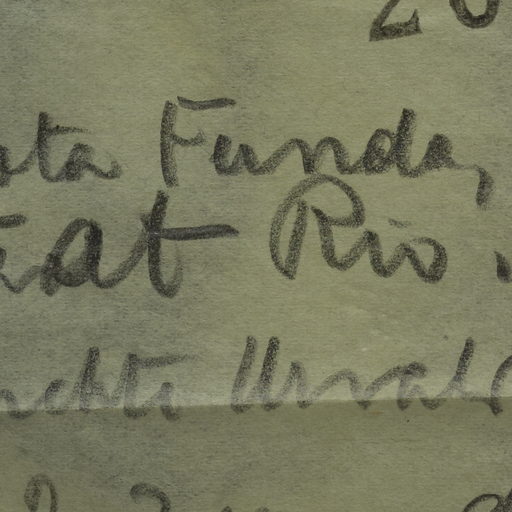 20
ata Funda,
eat Rio.
uchte Urwal